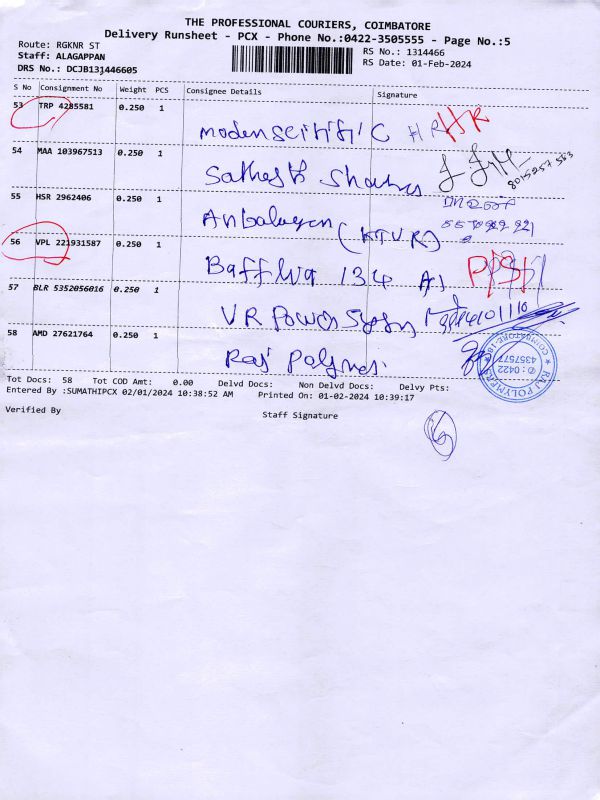 THE PROFESSIONAL COURIERS, COIMBATORE
Delivery Runsheet - PCX - Phone No.:0422-3505555 - Page No.:5
Route: RGKNR ST
Staff: ALAGAPPAN
DRS No.: DCJB131446605
RS No.: 1314466
RS Date: 01-Feb-2024
S No Consignment No Weight PCS Consignee Details Signature
53 TRP 4285581 0.250 1 HR HR
54 MAA 103967513 0.250 1
55 HSR 2962406 0.250 1 Anbalagan (KTVR)
56 VPL 221931587 0.250 1 134
57 BLR 5352056016 0.250 1 VR Power
58 AMD 27621764 0.250 1 Raj
RAJ POLYMERS
COIMBATORE-18
✆: 0422
4357577
Tot Docs: 58 Tot COD Amt: 0.00 Delvd Docs: Non Delvd Docs: Delvy Pts:
Entered By :SUMATHIPCX 02/01/2024 10:38:52 AM Printed On: 01-02-2024 10:39:17
Verified By Staff Signature